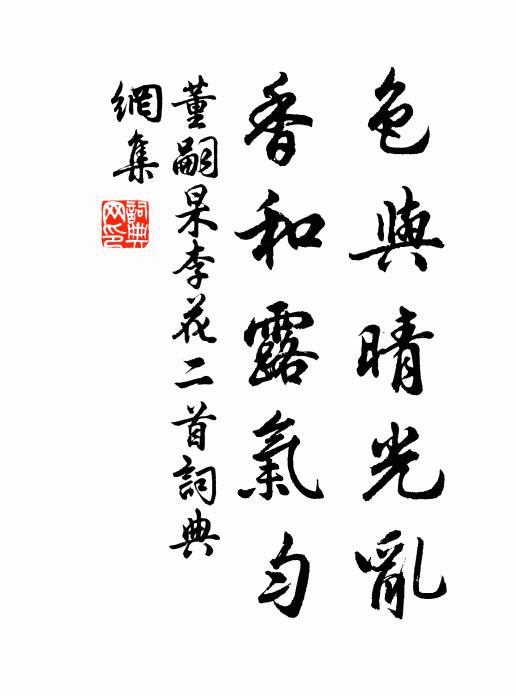 色與晴光亂
香和露氣勻
董嗣杲李花二首詞典
網集
詞典
网印